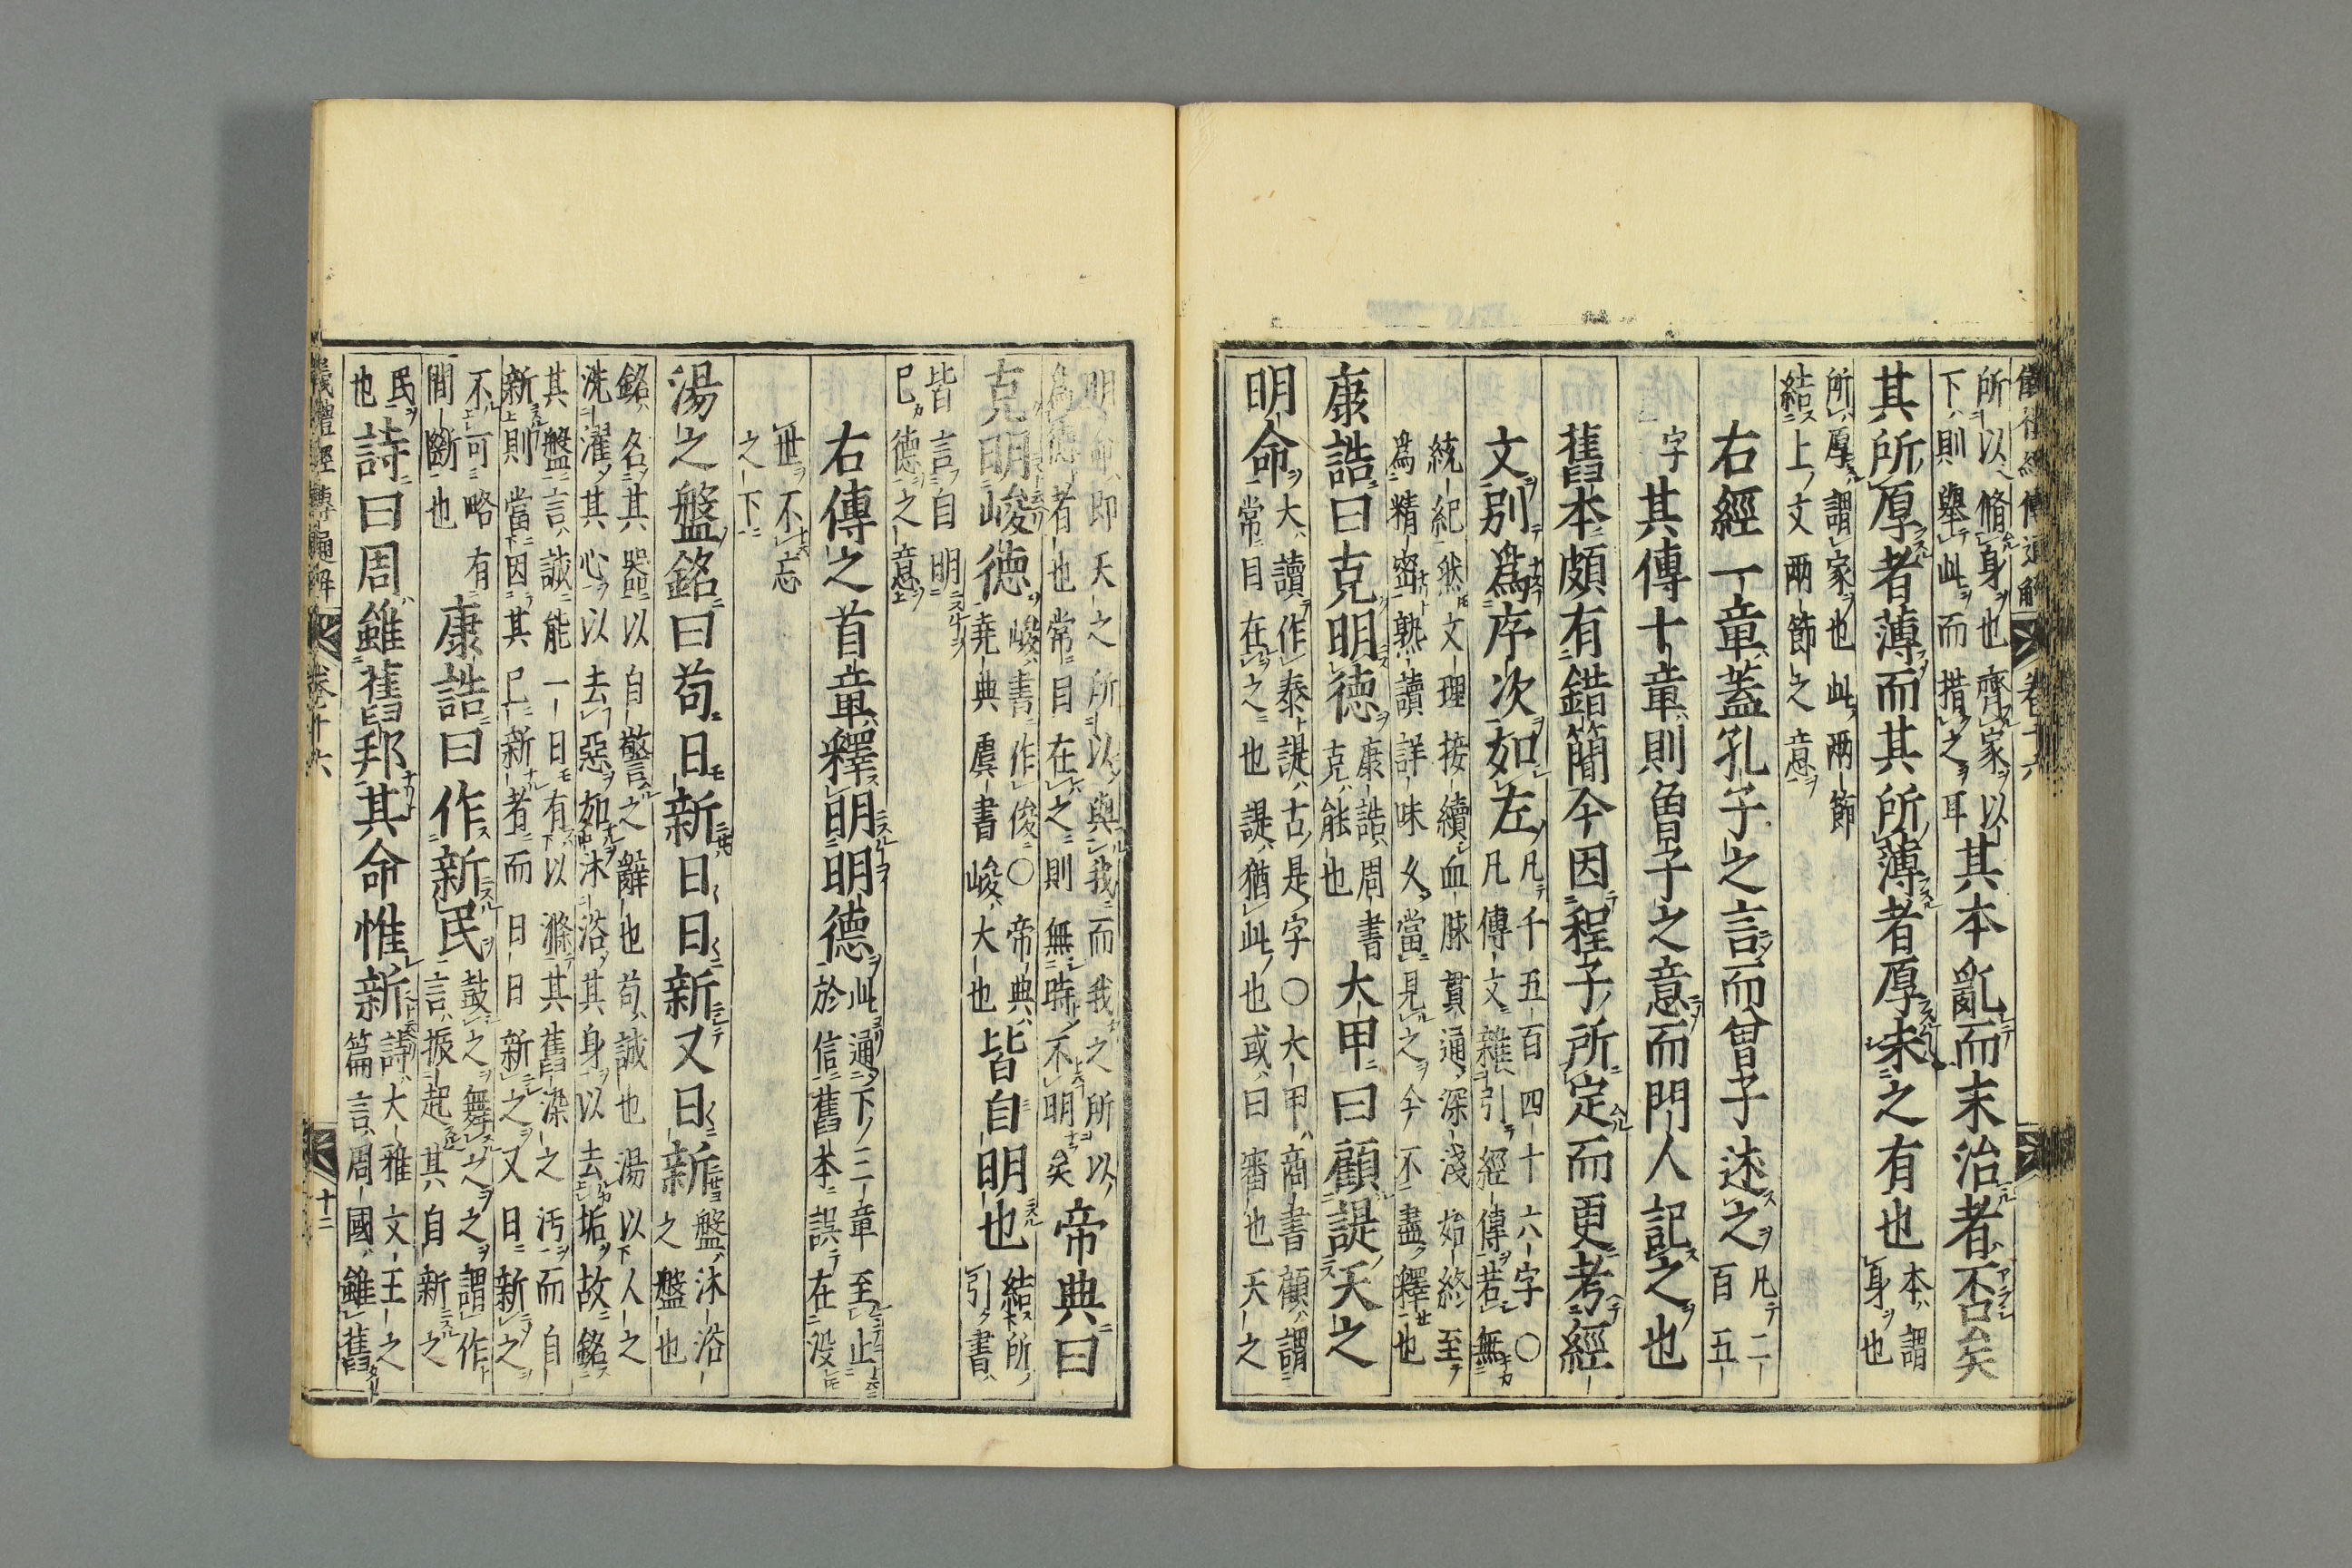 儀禮經傳通解 卷十六
所以脩身也齊家以
下則舉此而措之耳
其本亂而末治者否矣
其所厚者薄而其所薄者厚未之有也
本謂
身也
所厚謂家也此兩節
結上文兩節之意
右經一章蓋孔子之言而曾子述之
凡二
百五
字
其傳十章則曾子之意而門人記之也
舊本頗有錯簡今因程子所定而更考經
文別爲序次如左
凡千五百四十六字○
凡傳文雜引經傳若無
統紀然文理接續血脉貫通深淺始終至
爲精密熟讀詳味久當見之今不盡釋也
康誥曰克明德
康誥周書
克能也
大甲曰顧諟天之
明命
大讀作泰諟古是字○大甲商書顧謂
常目在之也諟猶此也或曰審也天之
明命即天之所以與我而我之所以
爲德者也常目在之則無時不明矣
帝典曰
克明峻德
峻書作俊○帝典
堯典虞書峻大也
皆自明也
結所
引書
皆言自明
已德之意
右傳之首章釋明明德
此通下三章至止
於信舊本誤在沒
世不忘
之下
湯之盤銘曰苟日新日日新又日新
盤沐浴
之盤也
銘名其器以自警之辭也苟誠也湯以人之
洗濯其心以去惡如沐浴其身以去垢故銘
其盤言誠能一日有以滌其舊染之汚而自
新則當因其已新者而日日新之又日新之
不可略有
間斷也
康誥曰作新民
鼓之舞之之謂作
言振起其自新之
民
也
詩曰周雖舊邦其命惟新
詩大雅文王之
篇言周國雖舊
儀禮經傳通解 卷十六 十二